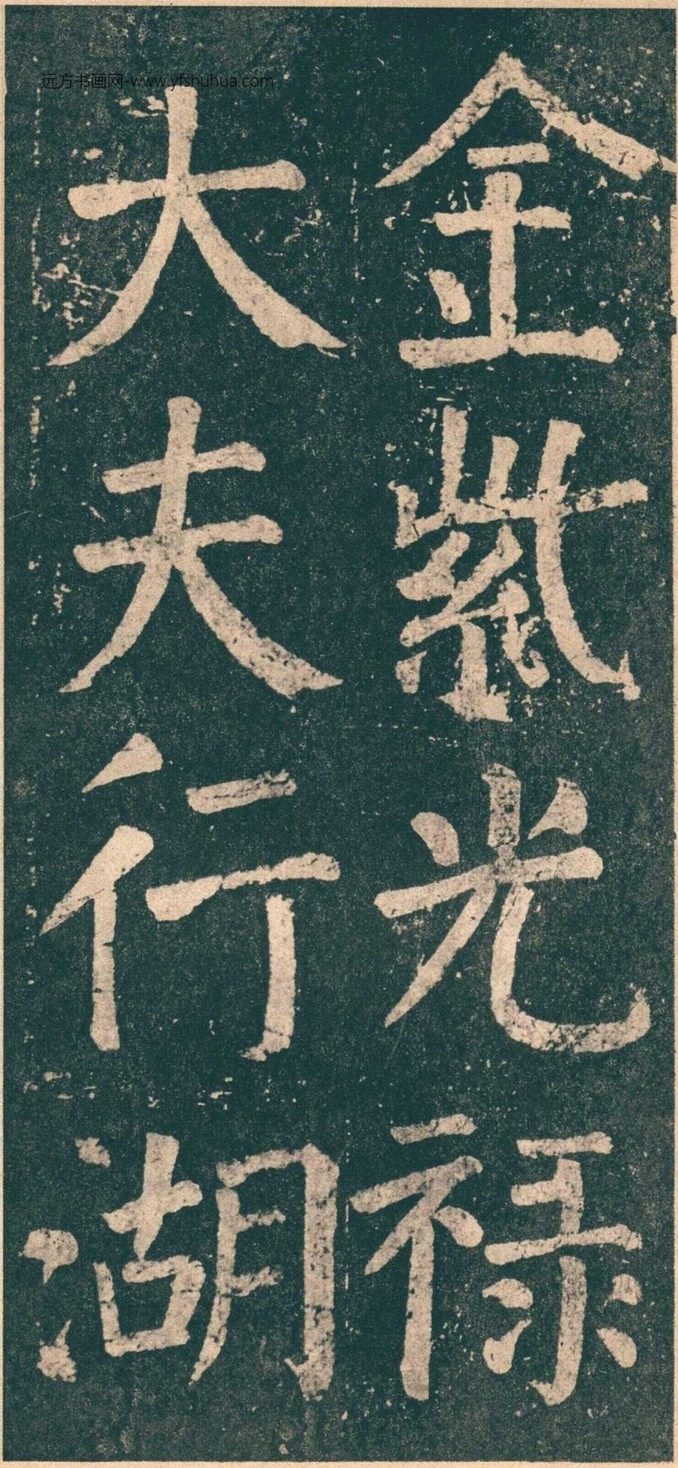 金紫光禄
大夫行湖
远方书画网-www.yfshuhua.com